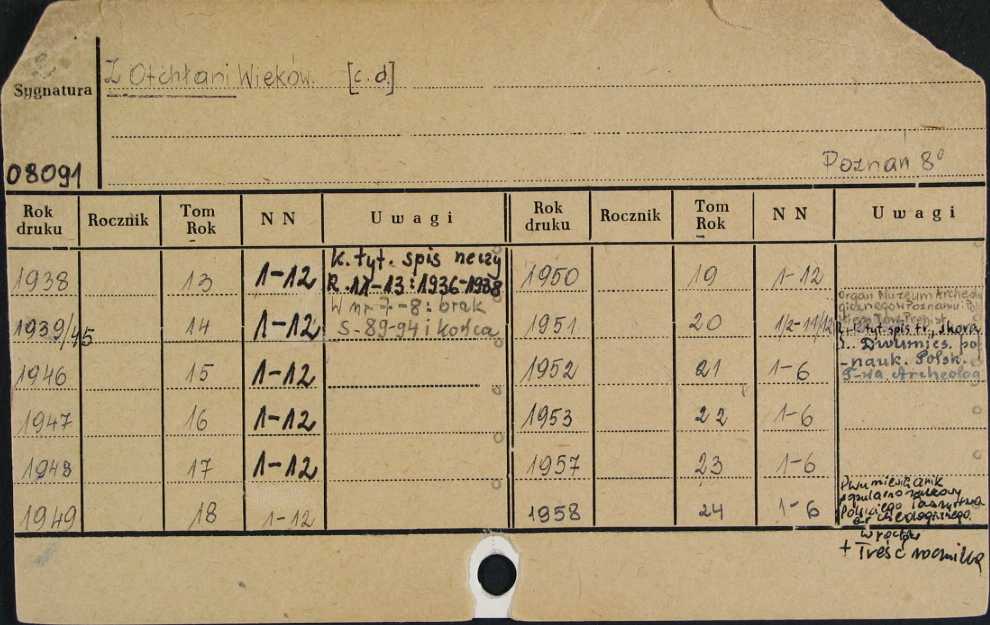 Z Otchłani Wieków. [c.d.]
Sygnatura
08091
Poznan 8°
Rok druku Rocznik Tom Rok NN Uwagi Rok druku Rocznik Tom Rok NN Uwagi
1938 13 1-12 K. tyt. spis rzeczy 1950 19 1-12
R. 11-13: 1936-1938
W nr 7-8: brak
1939/45 14 1-12 S-89-94 i końca 1951 20 1/2-11/12
Organ Muzeum Archeolo
gicznego w Poznaniu
K. tyt. spis tr., skorp
Dwumies. po
1946 15 1-12 1952 21 1-6
-nauk. Polsk.
T-wa Archeolog
1947 16 1-12 1953 22 1-6
1948 17 1-12 1957 23 1-6
1949 18 1-12 1958 24 1-6
Dwumiesięcznik
popularnonaukowy
Polskiego Towarzystwa
archeologicznego.
Wrocław
+ Treść rocznika